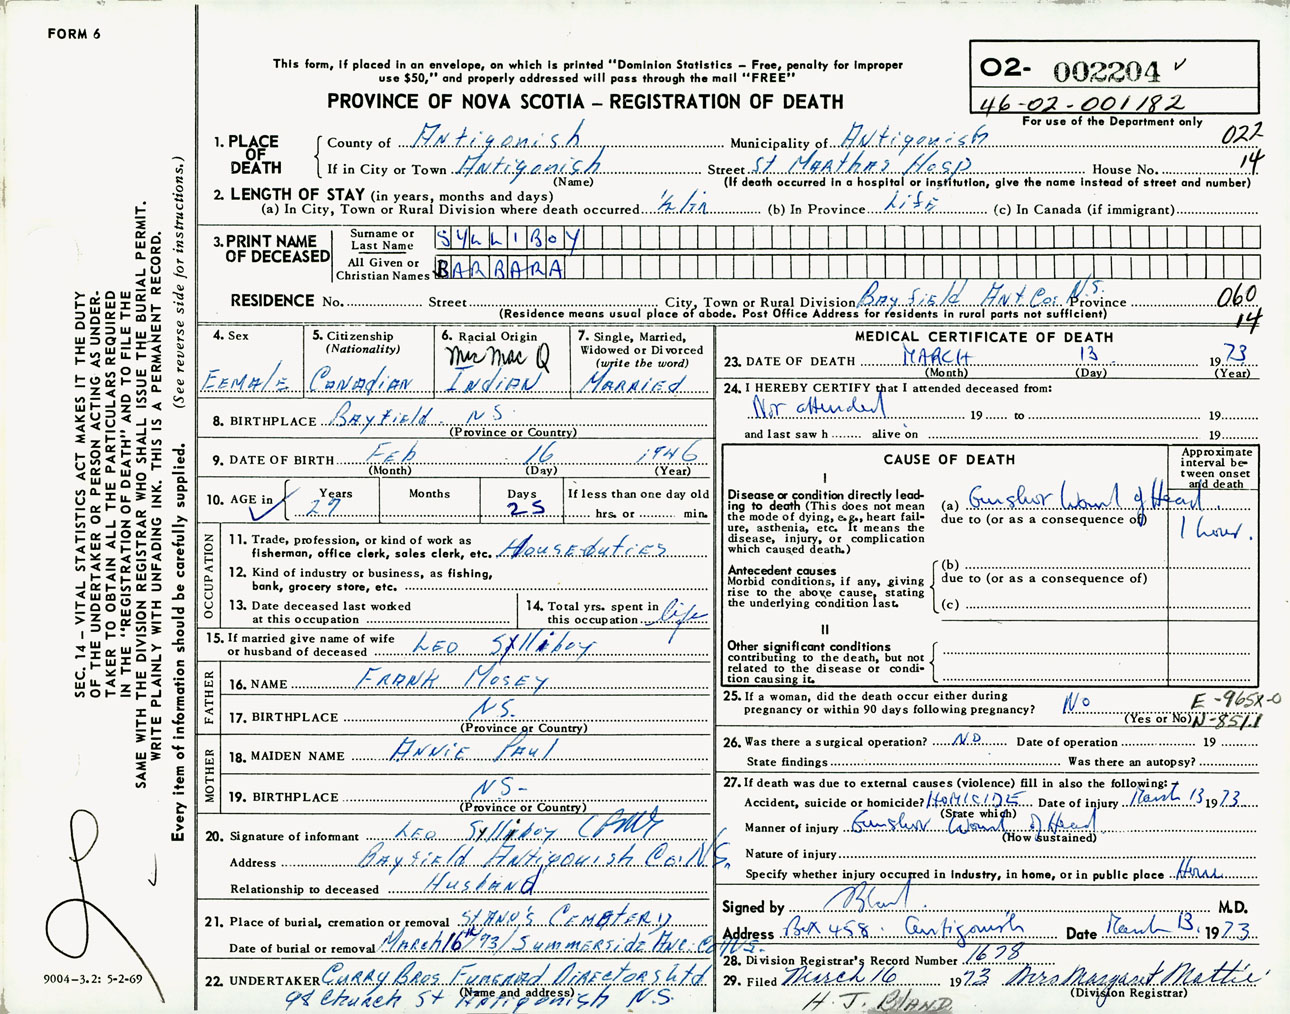 FORM 6
This form, if placed in an envelope, on which is printed "Dominion Statistics – Free, penalty for improper
use $50," and properly addressed will pass through the mail "FREE"
PROVINCE OF NOVA SCOTIA – REGISTRATION OF DEATH
02- 002204 ✓
46-02-001182
For use of the Department only
022
14
1. PLACE OF DEATH
County of Antigonish Municipality of Antigonish
If in City or Town Antigonish Street St Marthas Hosp House No.
(Name) (If death occurred in a hospital or institution, give the name instead of street and number)
2. LENGTH OF STAY (in years, months and days)
(a) In City, Town or Rural Division where death occurred (b) In Province Life (c) In Canada (if immigrant)
3. PRINT NAME OF DECEASED
Surname or Last Name SYLLIBOY
All Given or Christian Names BARBARA
RESIDENCE No. Street City, Town or Rural Division Bayfield Ant. Co. N.S. Province 060
(Residence means usual place of abode. Post Office Address for residents in rural parts not sufficient) 14
4. Sex
FEMALE
5. Citizenship
(Nationality)
CANADIAN
6. Racial Origin
Mrs Mac Q
INDIAN
7. Single, Married,
Widowed or Divorced
(write the word)
MARRIED
8. BIRTHPLACE Bayfield N S
(Province or Country)
9. DATE OF BIRTH Feb 16 1946
(Month) (Day) (Year)
10. AGE in ✓ Years 27 Months Days 25 If less than one day old
hrs. or min.
OCCUPATION
11. Trade, profession, or kind of work as
fisherman, office clerk, sales clerk, etc. House duties
12. Kind of industry or business, as fishing,
bank, grocery store, etc.
13. Date deceased last worked
at this occupation
14. Total yrs. spent in
this occupation life
15. If married give name of wife
or husband of deceased LEO Sylliboy
FATHER
16. NAME FRANK Mosey
17. BIRTHPLACE N.S.
(Province or Country)
MOTHER
18. MAIDEN NAME ANNIE Paul
19. BIRTHPLACE N S -
(Province or Country)
20. Signature of informant Leo Sylliboy
Address Bayfield Antigonish Co. N.S.
Relationship to deceased Husband
21. Place of burial, cremation or removal St Ann's Cemetery
Date of burial or removal March 16th/73/ Summerside Ant. Co N.S.
22. UNDERTAKER Curry Bros Funeral Directors Ltd
(Name and address)
98 Church St Antigonish N.S.
MEDICAL CERTIFICATE OF DEATH
23. DATE OF DEATH MARCH 13 1973
(Month) (Day) (Year)
24. I HEREBY CERTIFY that I attended deceased from:
Not attended 19 to 19
and last saw h alive on 19
CAUSE OF DEATH
Approximate
interval be-
tween onset
and death
I
Disease or condition directly lead-
ing to death (This does not mean
the mode of dying, e.g., heart fail-
ure, asthenia, etc. It means the
disease, injury, or complication
which caused death.)
(a) Gunshot Wound of Head
due to (or as a consequence of)
1 hour.
Antecedent causes
Morbid conditions, if any, giving
rise to the above cause, stating
the underlying condition last.
(b)
due to (or as a consequence of)
(c)
II
Other significant conditions
contributing to the death, but not
related to the disease or condi-
tion causing it.
25. If a woman, did the death occur either during
pregnancy or within 90 days following pregnancy? No
(Yes or No)
E-965X-0
N-851.1
26. Was there a surgical operation? No Date of operation 19
State findings Was there an autopsy?
27. If death was due to external causes (violence) fill in also the following:
Accident, suicide or homicide? HOMICIDE Date of injury March 13 1973
(State which)
Manner of injury Gunshot Wound of Head
(How sustained)
Nature of injury
Specify whether injury occurred in Industry, in home, or in public place Home
Signed by Bland M.D.
Address Box 458. Antigonish Date March 13. 1973
28. Division Registrar's Record Number 1678
29. Filed March 16 1973 Mrs Margaret Mattie
(Division Registrar)
H. J. BLAND
SEC. 14 – VITAL STATISTICS ACT MAKES IT THE DUTY
OF THE UNDERTAKER OR PERSON ACTING AS UNDER-
TAKER TO OBTAIN ALL THE PARTICULARS REQUIRED
IN THE "REGISTRATION OF DEATH" AND TO FILE THE
SAME WITH THE DIVISION REGISTRAR WHO SHALL ISSUE THE BURIAL PERMIT.
WRITE PLAINLY WITH UNFADING INK. THIS IS A PERMANENT RECORD.
Every item of information should be carefully supplied. (See reverse side for instructions.)
9004–3.2: 5-2-69